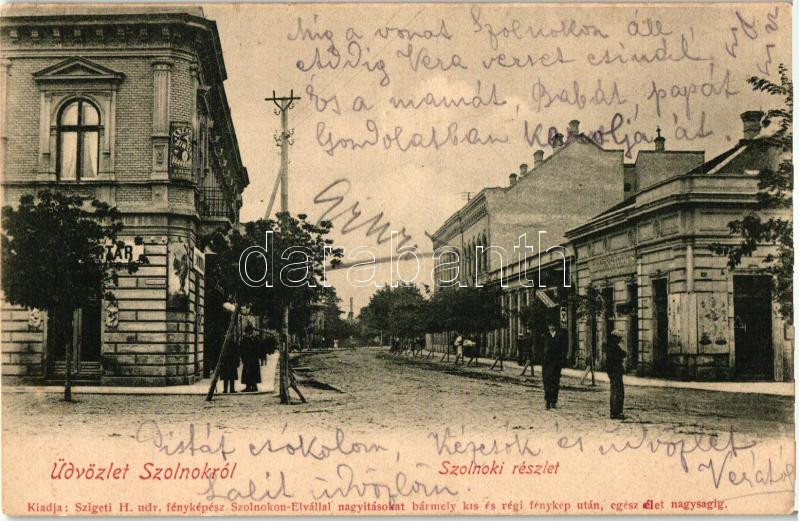 Míg a vonat Szolnokon áll
Addig Vera verset csinál,
És a mamát, Babát, papát
Gondolatban karolja át.
TÁR
darabanth
Pistát csókolom, Kézcsók és üdvözlet
Verától
Üdvözlet Szolnokról
Szolnoki részlet
üdvözlöm.
Kiadja: Szigeti H. udv. fényképész Szolnokon-Elvállal nagyitásokat bármely kis és régi fénykép után, egész élet nagysagig.